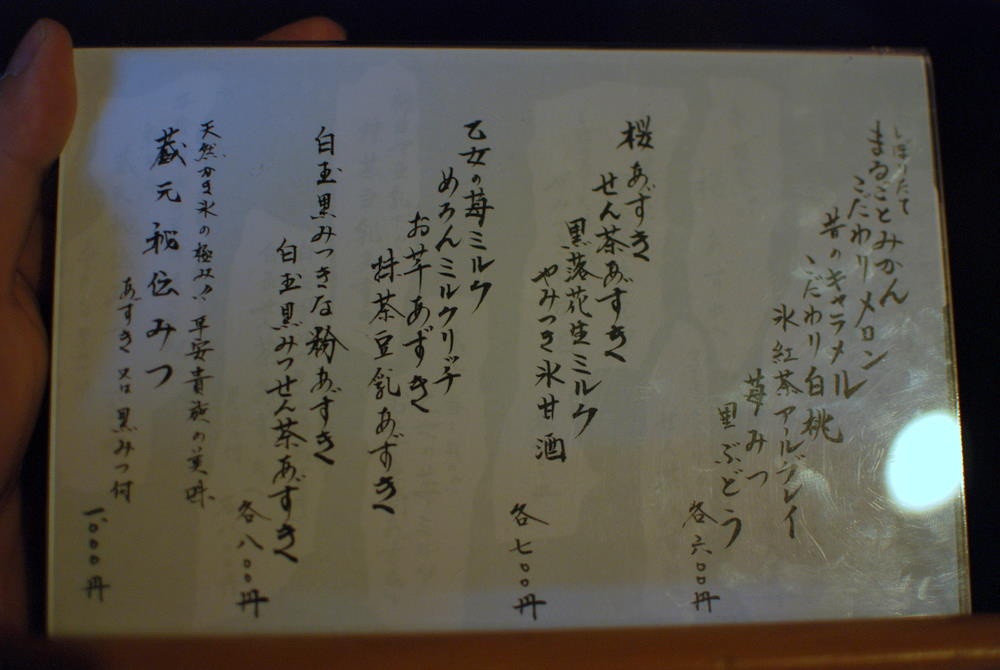 しぼりたて
まるごとみかん
こだわりメロン
昔のキャラメル
こだわり白桃
氷紅茶アールグレイ
苺みつ
黒ぶどう
各六〇〇円
桜あずき
せん茶あずき
黒落花生ミルク
やみつき氷甘酒
各七〇〇円
乙女の苺ミルク
めろんミルクリッチ
お芋あずき
抹茶豆乳あずき
白玉黒みつきな粉あずき
白玉黒みつせん茶あずき
各八〇〇円
天然かき氷の極み!!平安貴族の美味
蔵元秘伝みつ
あずき又は黒みつ付
一、〇〇〇円